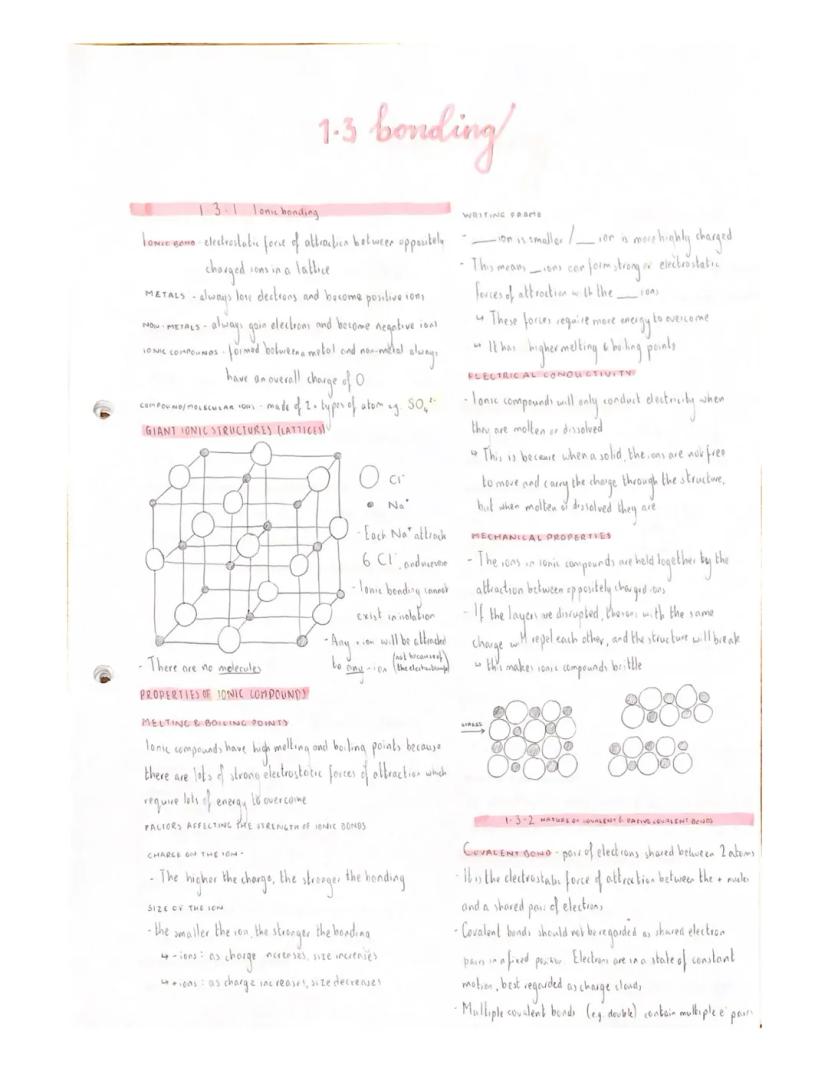 1.3 bonding
1.3.1 Ionic bonding
IONIC BOND - electrostatic force of attraction between oppositely
charged ions in a lattice
METALS - always lose electrons and become positive ions
NON-METALS - always gain electrons and become negative ions
IONIC COMPOUNDS - formed between a metal and non-metal always
have an overall charge of 0
COMPOUND/MOLECULAR IONS - made of 2+ types of atom eg. SO₄²⁻
GIANT IONIC STRUCTURES (LATTICES)
Cl⁻
Na⁺
- Each Na⁺ attracts
6 Cl⁻, and
- Ionic bonding cannot
exist in isolation
- Any + ion will be attracted
to any - ion (not because of
the electron)
- There are no molecules
PROPERTIES OF IONIC COMPOUNDS
MELTING & BOILING POINTS
Ionic compounds have high melting and boiling points because
there are lots of strong electrostatic forces of attraction which
require lots of energy to overcome
FACTORS AFFECTING THE STRENGTH OF IONIC BONDS
CHARGE ON THE ION -
- The higher the charge, the stronger the bonding
SIZE OF THE ION
- the smaller the ion, the stronger the bonding
↳ - ions : as charge increases, size increases
↳ + ions : as charge increases, size decreases
WRITING FRAME
- ___ ion is smaller / ___ ion is more highly charged
- This means __ ions can form stronger electrostatic
forces of attraction with the ___ ions
↳ These forces require more energy to overcome
↳ It has higher melting & boiling points
ELECTRICAL CONDUCTIVITY
- Ionic compounds will only conduct electricity when
they are molten or dissolved
↳ This is because when a solid, the ions are not free
to move and carry the charge through the structure,
but when molten or dissolved they are
MECHANICAL PROPERTIES
- The ions in ionic compounds are held together by the
attraction between oppositely charged ions
- If the layers are disrupted, the ions with the same
charge will repel each other, and the structure will break
↳ this makes ionic compounds brittle
STRESS
1.3.2 NATURE OF COVALENT & DATIVE COVALENT BONDS
COVALENT BOND - pair of electrons shared between 2 atoms
- It is the electrostatic force of attraction between the + nuclei
and a shared pair of electrons
- Covalent bonds should not be regarded as shared electron
pairs in a fixed position. Electrons are in a state of constant
motion, best regarded as charge clouds
- Multiple covalent bonds (e.g. double) contain multiple e⁻ pairs